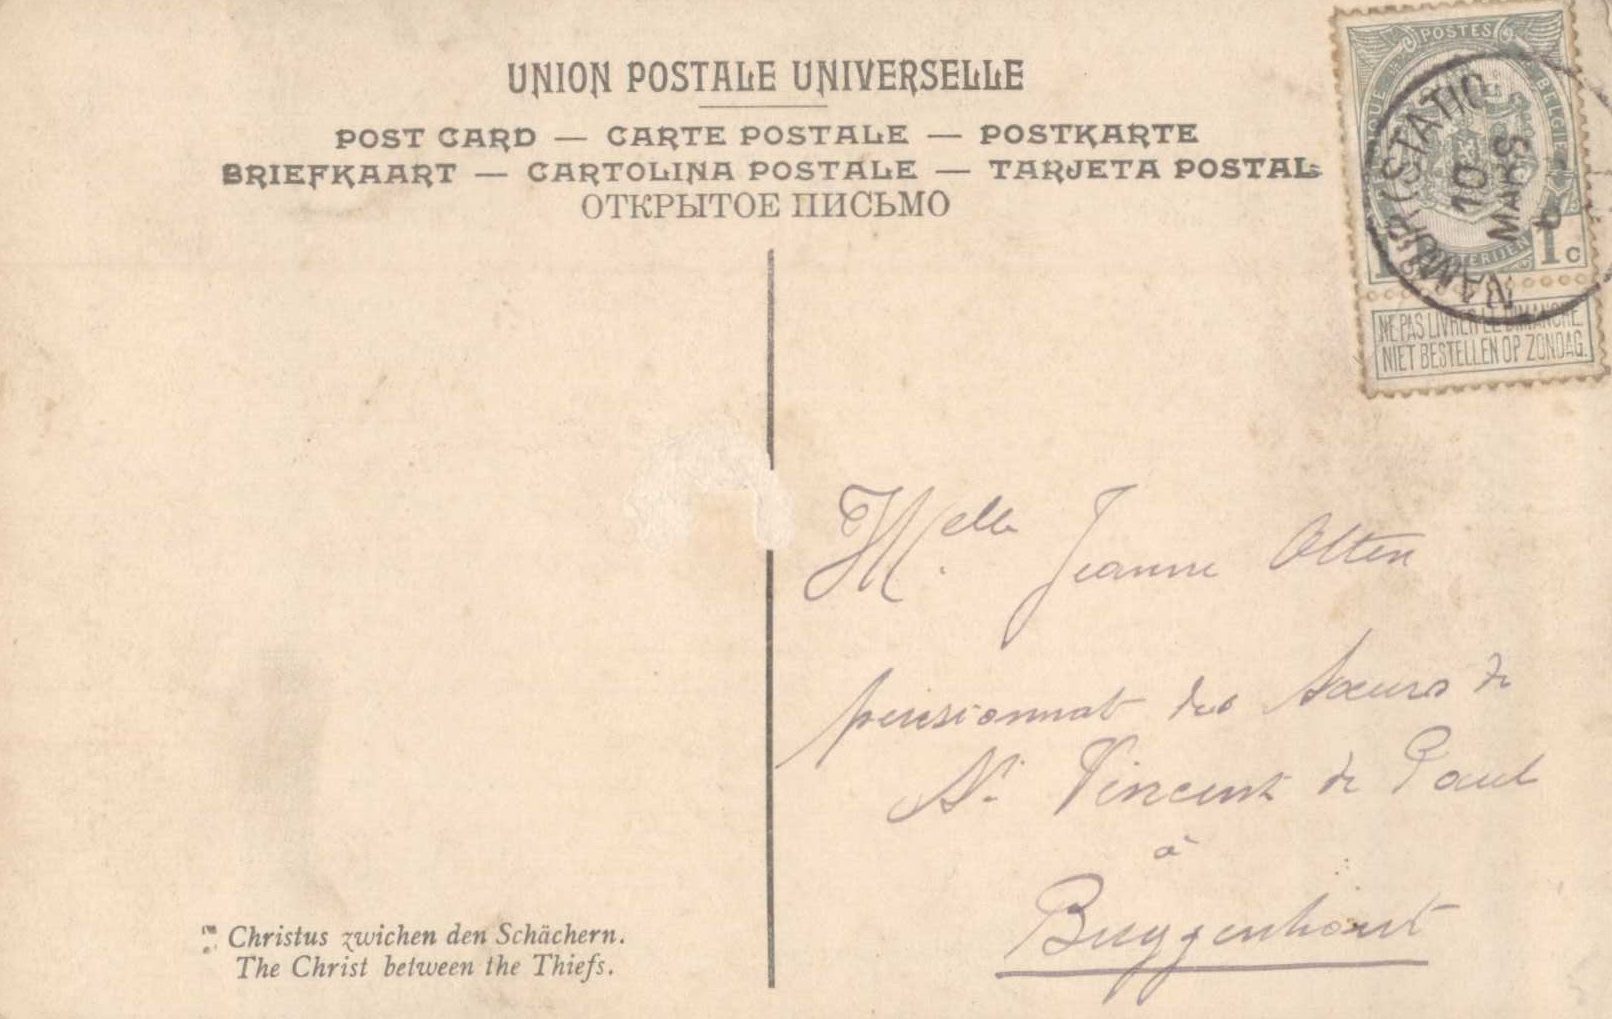 UNION POSTALE UNIVERSELLE
POST CARD — CARTE POSTALE — POSTKARTE
BRIEFKAART — CARTOLINA POSTALE — TARJETA POSTAL
ОТКРЫТОЕ ПИСЬМО
POSTES
BELGIE
1c
NAMUR (STATIO
10
MARS
NE PAS LIVRER LE DIMANCHE.
NIET BESTELLEN OP ZONDAG.
Melle Jeanne Olten
pensionnat des Soeurs de
St Vincent de Paul
à
Buggenhout
Christus zwichen den Schächern.
The Christ between the Thiefs.